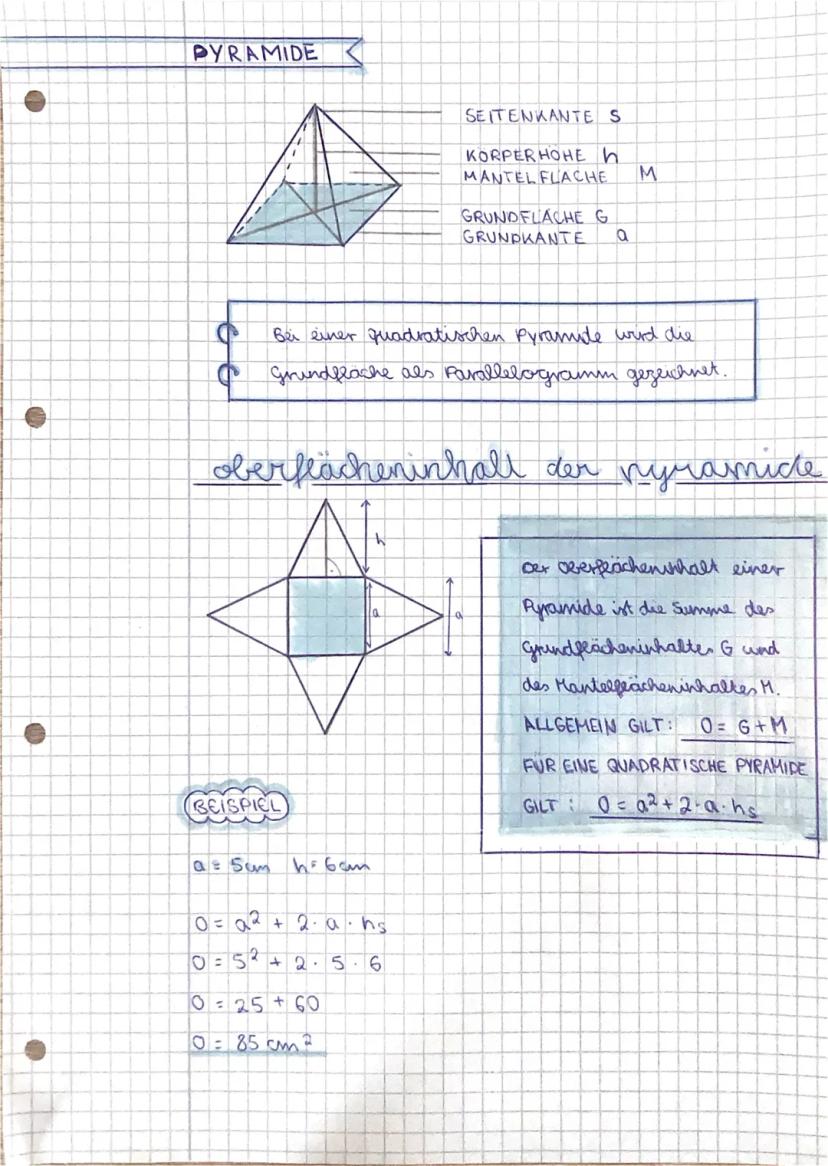 PYRAMIDE
SEITENKANTE s
KÖRPERHÖHE h
MANTELFLÄCHE M
GRUNDFLÄCHE G
GRUNDKANTE a
Bei einer quadratischen Pyramide wird die
Grundfläche als Parallelogramm gezeichnet.
oberflächeninhalt der pyramide
h
a
a
Der Oberflächeninhalt einer
Pyramide ist die Summe des
Grundflächeninhaltes G und
des Mantelflächeninhaltes M.
ALLGEMEIN GILT: O = G + M
FÜR EINE QUADRATISCHE PYRAMIDE
GILT: O = a² + 2 · a · hs
BEISPIEL
a = 5cm h = 6cm
O = a² + 2 · a · hs
O = 5² + 2 · 5 · 6
O = 25 + 60
O = 85 cm²